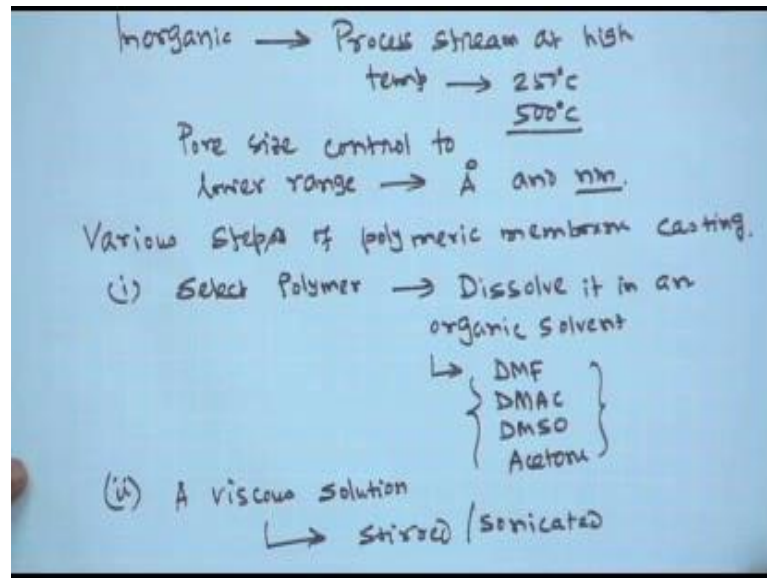 Inorganic → Process stream at high
temp → 257°C
500°C
Pore size control to
lower range → Å and nm.
Various steps of polymeric membrane casting.
(i) Select Polymer → Dissolve it in an
organic solvent
↳ DMF
DMAC
DMSO
Acetone
(ii) A viscous solution
↳ stirred / sonicated